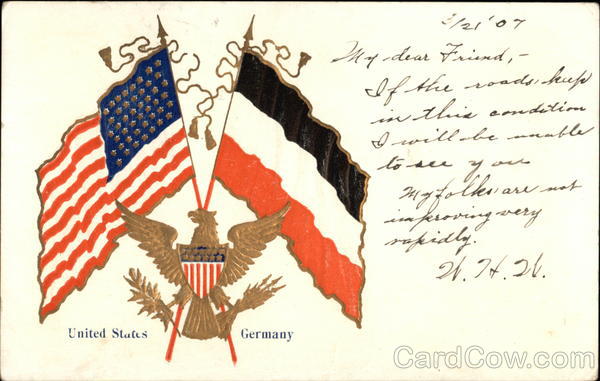 3/21 '07
My dear Friend,-
If the roads keep
in this condition
I will be unable
to see you
My folks are not
improving very
rapidly.
W. H. W.
United States
Germany
CardCow.com